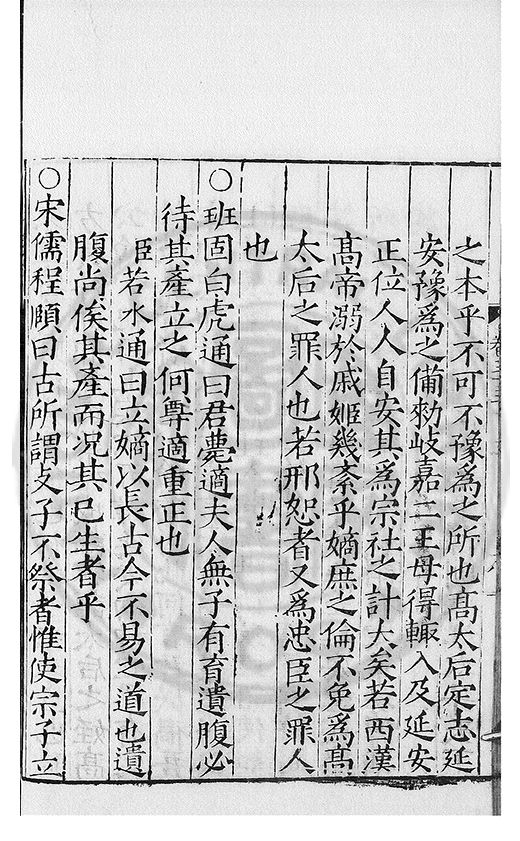 之本乎不可不豫爲之所也髙太后定志延
安豫爲之備勑岐嘉二王母得輙入及延安
正位人人自安其爲宗社之計大矣若西漢
髙帝溺於戚姬幾紊乎嫡庶之倫不免爲髙
太后之罪人也若邢恕者又爲忠臣之罪人
也
○班固白虎通曰君薨適夫人無子有育遺腹必
待其產立之何尊適重正也
臣若水通曰立嫡以長古今不易之道也遺
腹尚俟其產而况其已生者乎
○宋儒程頤曰古所謂支子不祭者惟使宗子立